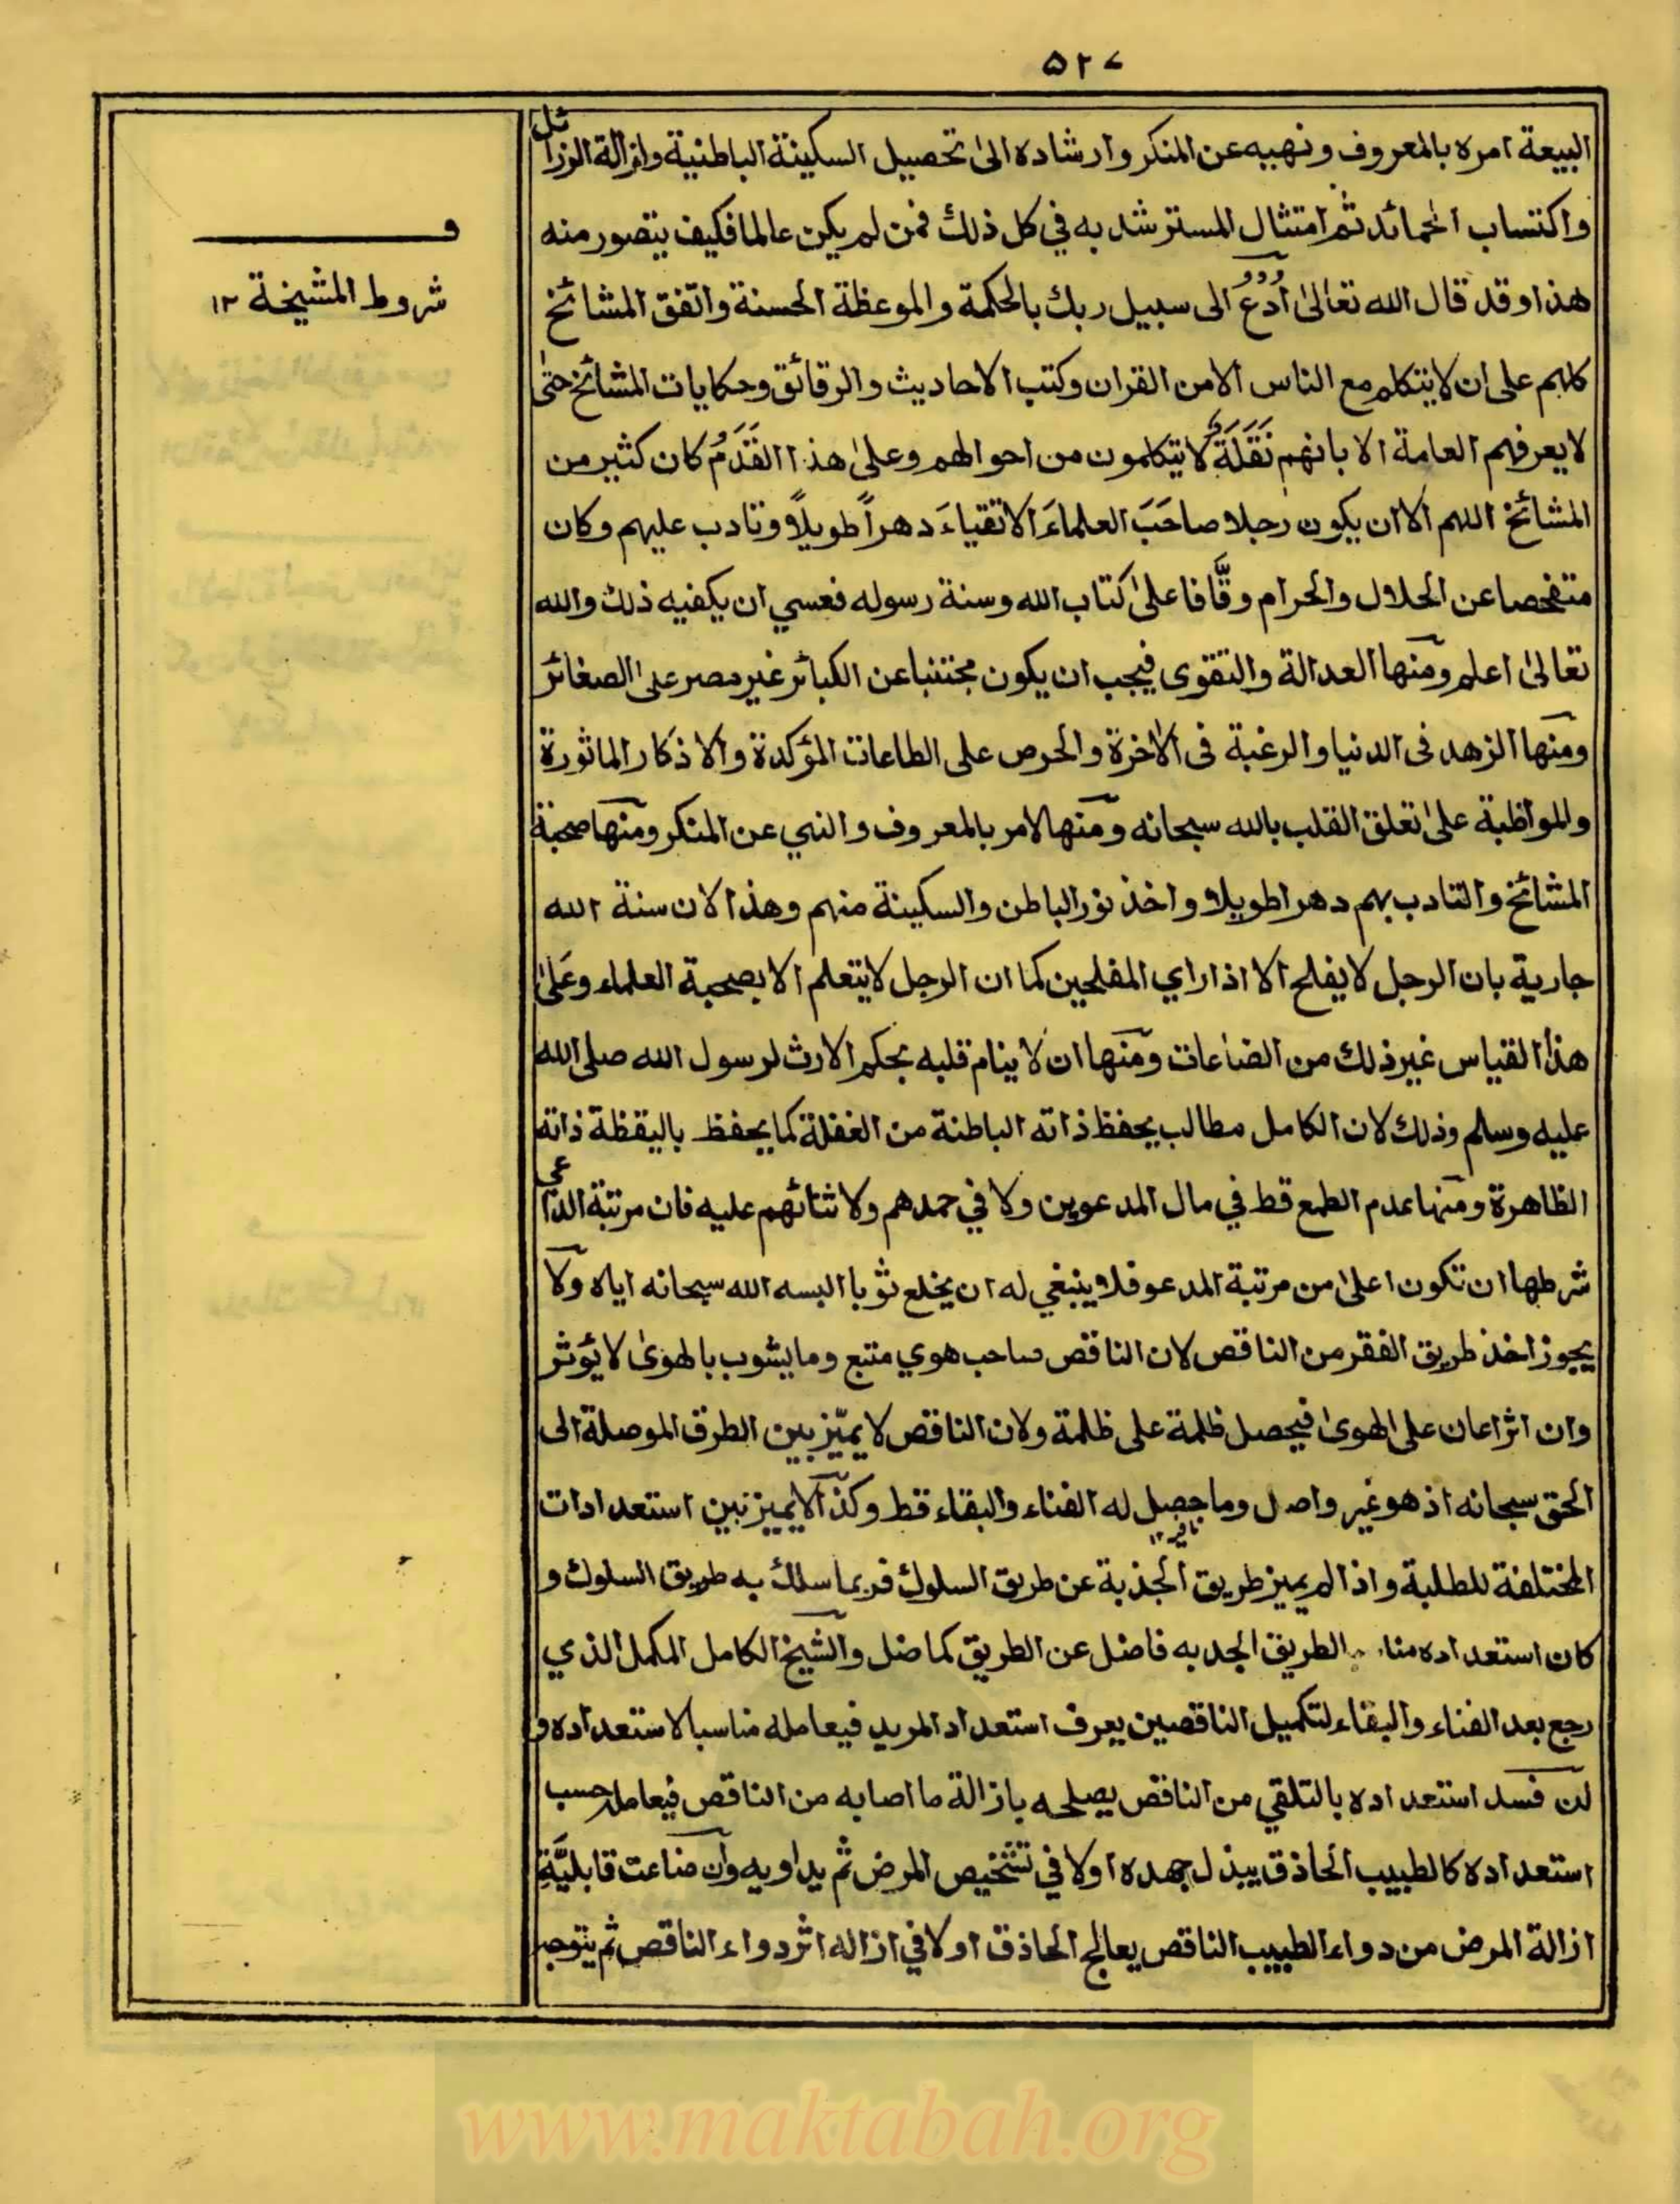 ۵۲۷
البيعة امره بالمعروف ونهيه عن المنكر وارشاده الى تحصيل السكينة الباطنية وازالة الرذائل
واكتساب الحمائد ثم امتثال المسترشد به في كل ذلك فمن لم يكن عالما فكيف يتصور منه
هذا وقد قال الله تعالىٰ اُدْعُ الى سبيل ربك بالحكمة والموعظة الحسنة واتفق المشائخ
كلهم على ان لا يتكلم مع الناس الا من القران وكتب الاحاديث والرقائق وحكايات المشائخ حتىٰ
لا يعرفهم العامة الا بانهم نَقَلَة لا يتكلمون من احوالهم وعلىٰ هذا القَدَمُ كان كثير من
المشائخ اللهم الا ان يكون رجلا صاحَبَ العلماءَ الاتقياءَ دهراً طويلاً وتادب عليهم وكان
متفحصا عن الحلال والحرام وقَّافا علىٰ كتاب الله وسنة رسوله فعسي ان يكفيه ذلك والله
تعالىٰ اعلم ومنها العدالة والتقوى فيجب ان يكون مجتنبا عن الكبائر غير مصر على الصغائر
ومنها الزهد فى الدنيا والرغبة فى الاٰخرة والحرص على الطاعات المؤكدة والاذكار الماثورة
والمواظبة علىٰ تعلق القلب بالله سبحانه ومنها الامر بالمعروف والنهي عن المنكر ومنها صحبة
المشائخ والتادب بهم دهرا طويلا واخذ نور الباطن والسكينة منهم وهذا لان سنة الله
جارية بان الرجل لا يفلح الا اذا راي المفلحين كما ان الرجل لا يتعلم الا بصحبة العلماء وعَلىٰ
هذا القياس غير ذلك من الضاعات ومنها ان لا ينام قلبه بحكم الارث لرسول الله صلى الله
عليه وسلم وذلك لان الكامل مطالب بحفظ ذاته الباطنة من الغفلة كما يحفظ باليقظة ذاته
الظاهرة ومنها عدم الطمع قط في مال المدعوين ولا في حمدهم ولا ثنائهم عليه فان مرتبة الداعي
شرطها ان تكون اعلىٰ من مرتبة المدعو فلا ينبغي له ان يخلع ثوبا البسه الله سبحانه اياه ولا
يجوز اخذ طريق الفقر من الناقص لان الناقص صاحب هوي متبع وما يشوب بالهوىٰ لا يؤثر
وان اثر اعان على الهوىٰ فيحصل ظلمة على ظلمة ولان الناقص لا يميّز بين الطرق الموصلة الى
الحق سبحانه اذ هو غير واصل وما حصل له الفناء والبقاء قط وكذا لا يميز بين استعدادات
المختلفة للطلبة واذا لم يميز طريق الجذبة عن طريق السلوك فربما سلك به طريق السلوك و
كان استعداده الطريق الجدبه فاضل عن الطريق كما ضل والشيخ الكامل المكمل الذي
رجع بعد الفناء والبقاء لتكميل الناقصين يعرف استعداد المريد فيعامله مناسبا لاستعداده و
لئن فسد استعداده بالتلقي من الناقص يصلحه بازالة ما اصابه من الناقص فيعامله حسب
استعداده كالطبيب الحاذق يبذل جهده اولا في تشخيص المرض ثم يداويه وان ضاعت قابليَّة
ازالة المرض من دواء الطبيب الناقص يعالج الحاذق اولا في ازاله اثر دواء الناقص ثم يتوجه
ف
شروط المشيخة ١٢
www.maktabah.org